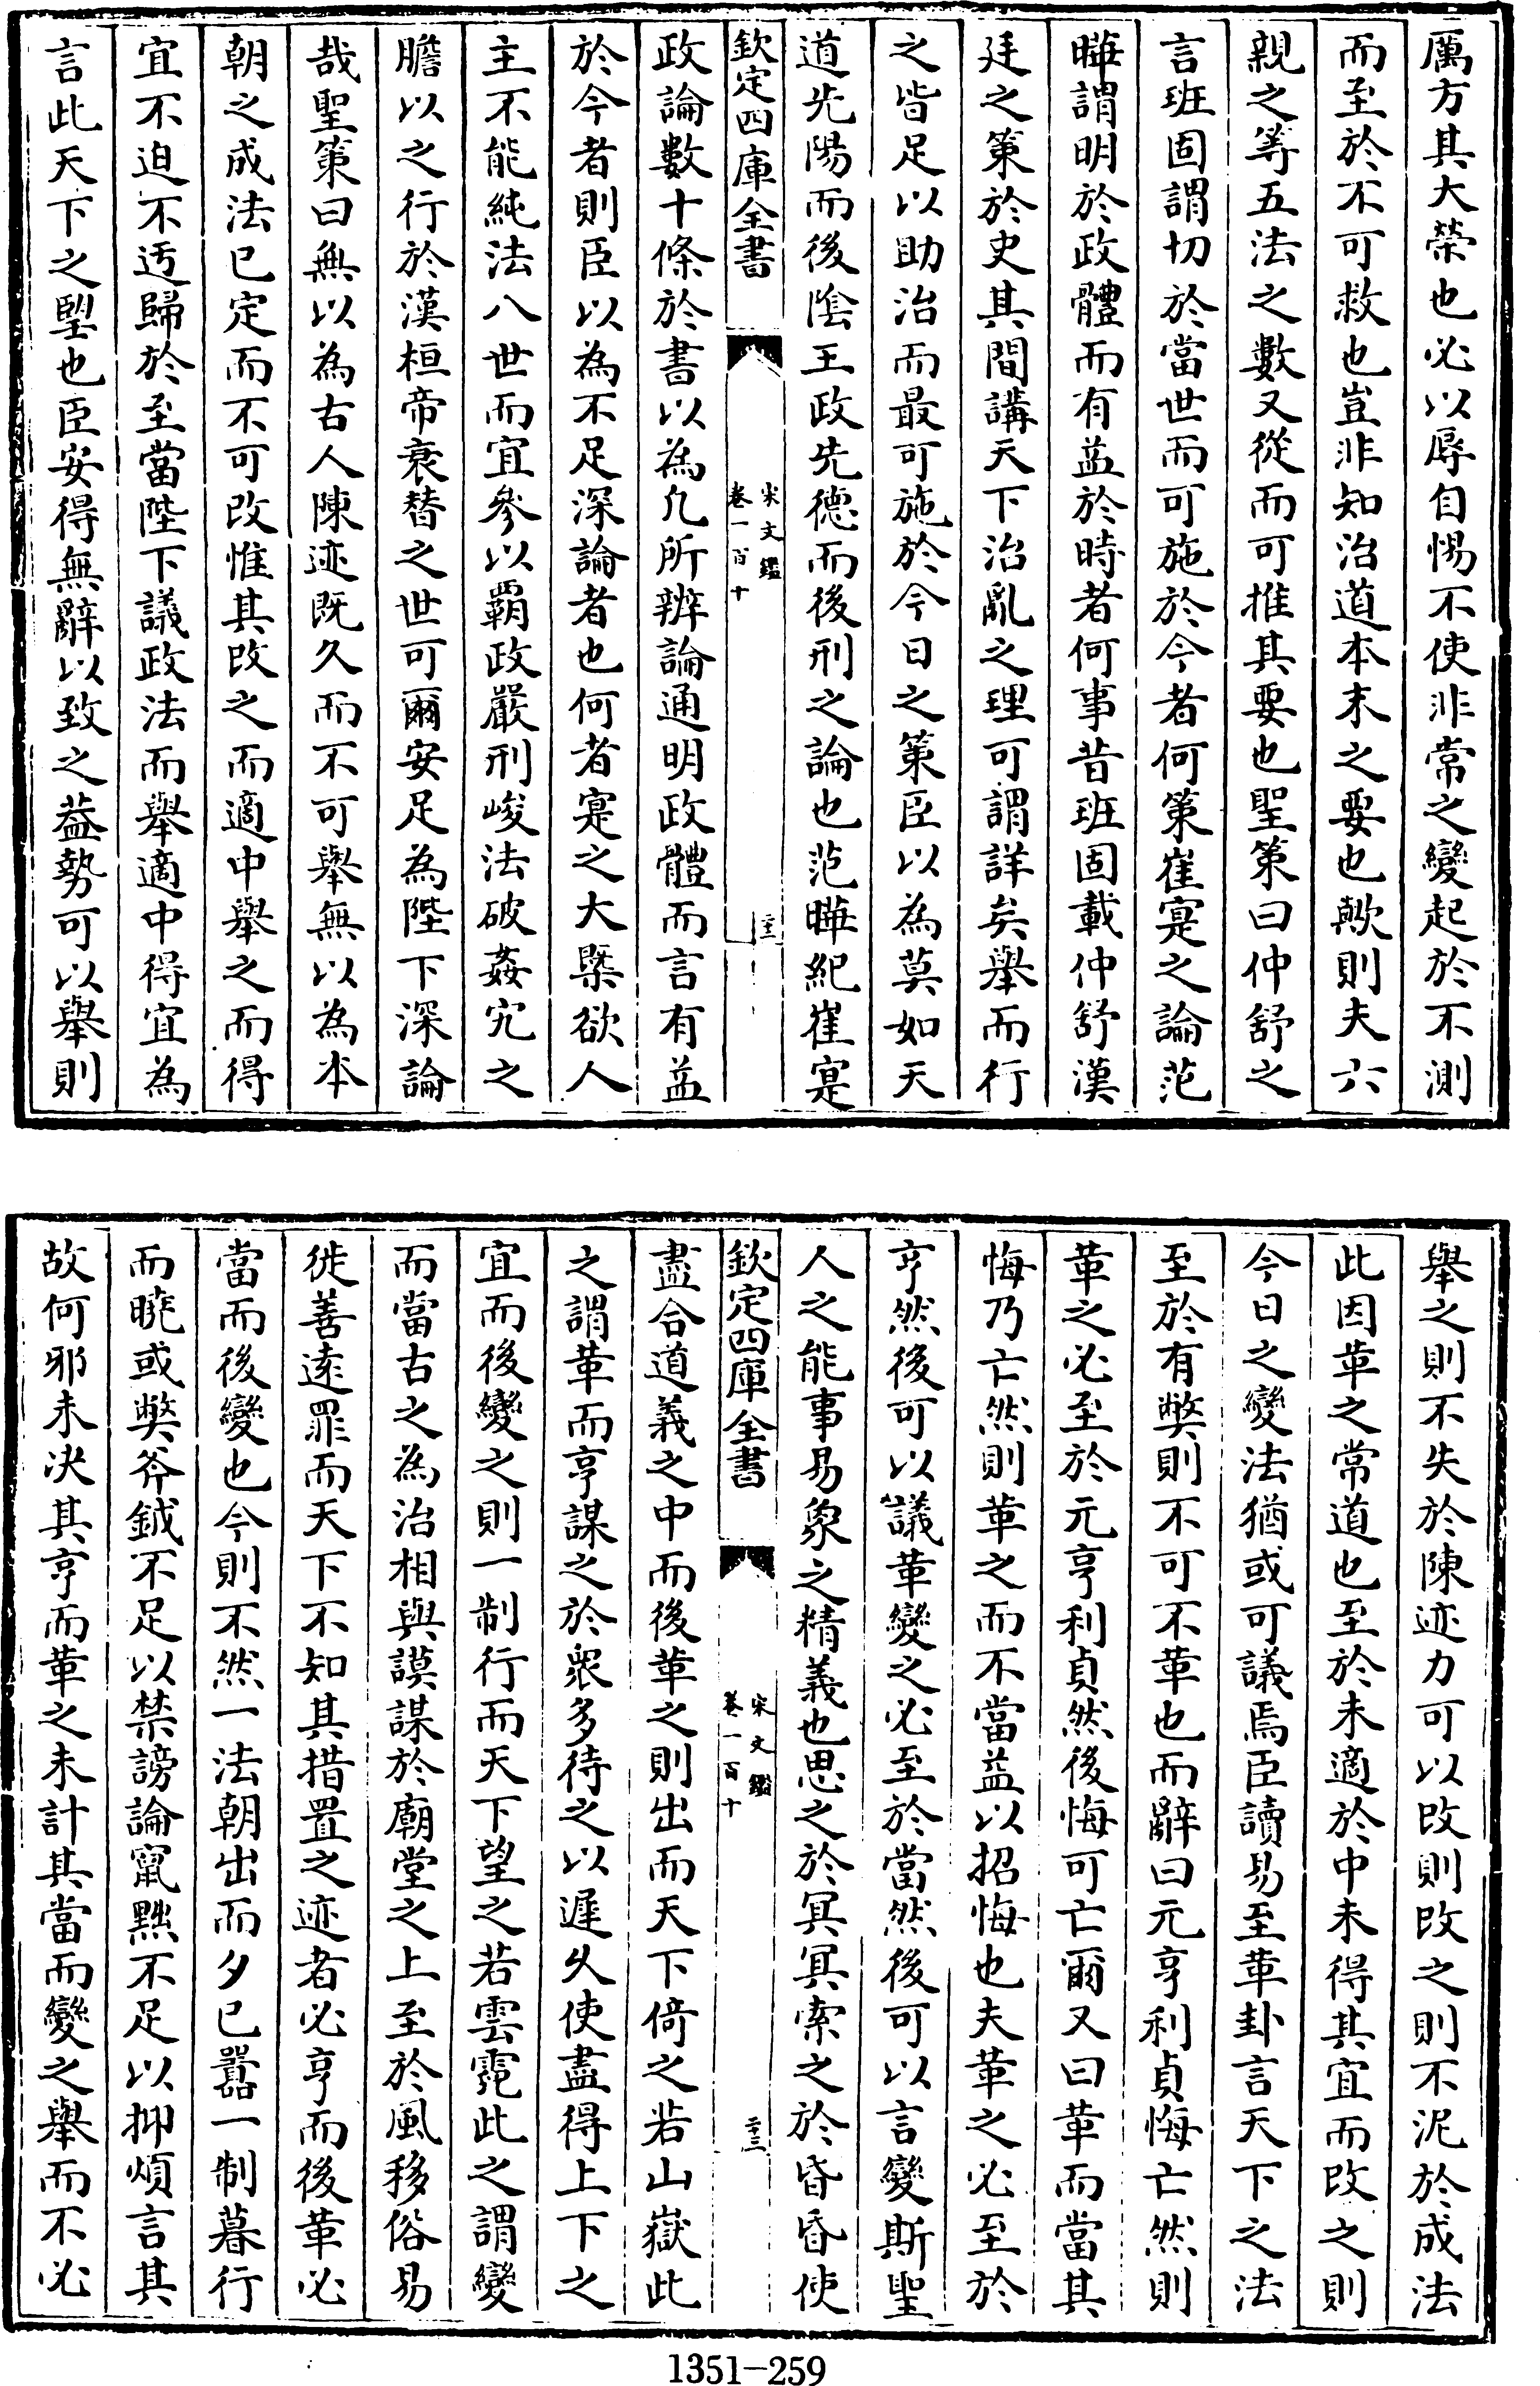 厲方其大榮也必以辱自惕不使非常之變起於不測
而至於不可救也豈非知治道本末之要也歟則夫六
親之等五法之數又從而可推其要也聖策曰仲舒之
言班固謂切於當世而可施於今者何策崔寔之論范
曄謂明於政體而有益於時者何事昔班固載仲舒漢
廷之策於史其間講天下治亂之理可謂詳矣舉而行
之皆足以助治而最可施於今日之策臣以為莫如天
道先陽而後陰王政先德而後刑之論也范曄紀崔寔
欽定四庫全書
宋文鑑
卷一百十
二十二
政論數十條於書以為凡所辨論通明政體而言有益
於今者則臣以為不足深論者也何者寔之大槩欲人
主不能純法八世而宜參以覇政嚴刑峻法破姦宄之
膽以之行於漢桓帝衰替之世可爾安足為陛下深論
哉聖策曰無以為古人陳迹既久而不可舉無以為本
朝之成法已定而不可改惟其改之而適中舉之而得
宜不迫不迂歸於至當陛下議政法而舉適中得宜為
言此天下之朢也臣安得無辭以致之益勢可以舉則
舉之則不失於陳迹力可以改則改之則不泥於成法
此因革之常道也至於未適於中未得其宜而改之則
今日之變法猶或可議焉臣讀易至革卦言天下之法
至於有弊則不可不革也而辭曰元亨利貞悔亡然則
革之必至於元亨利貞然後悔可亡爾又曰革而當其
悔乃亡然則革之而不當益以招悔也夫革之必至於
亨然後可以議革變之必至於當然後可以言變斯聖
人之能事易象之精義也思之於冥冥索之於昏昏使
欽定四庫全書
宋文鑑
卷一百十
二十三
盡合道義之中而後革之則出而天下倚之若山嶽此
之謂革而亨謀之於衆多待之以遲久使盡得上下之
宜而後變之則一制行而天下望之若雲霓此之謂變
而當古之為治相與謨謀於廟堂之上至於風移俗易
徙善遠罪而天下不知其措置之迹者必亨而後革必
當而後變也今則不然一法朝出而夕已囂一制暮行
而曉或弊斧鉞不足以禁謗論竄黜不足以抑煩言其
故何邪未決其亨而革之未計其當而變之舉而不必
1351-259